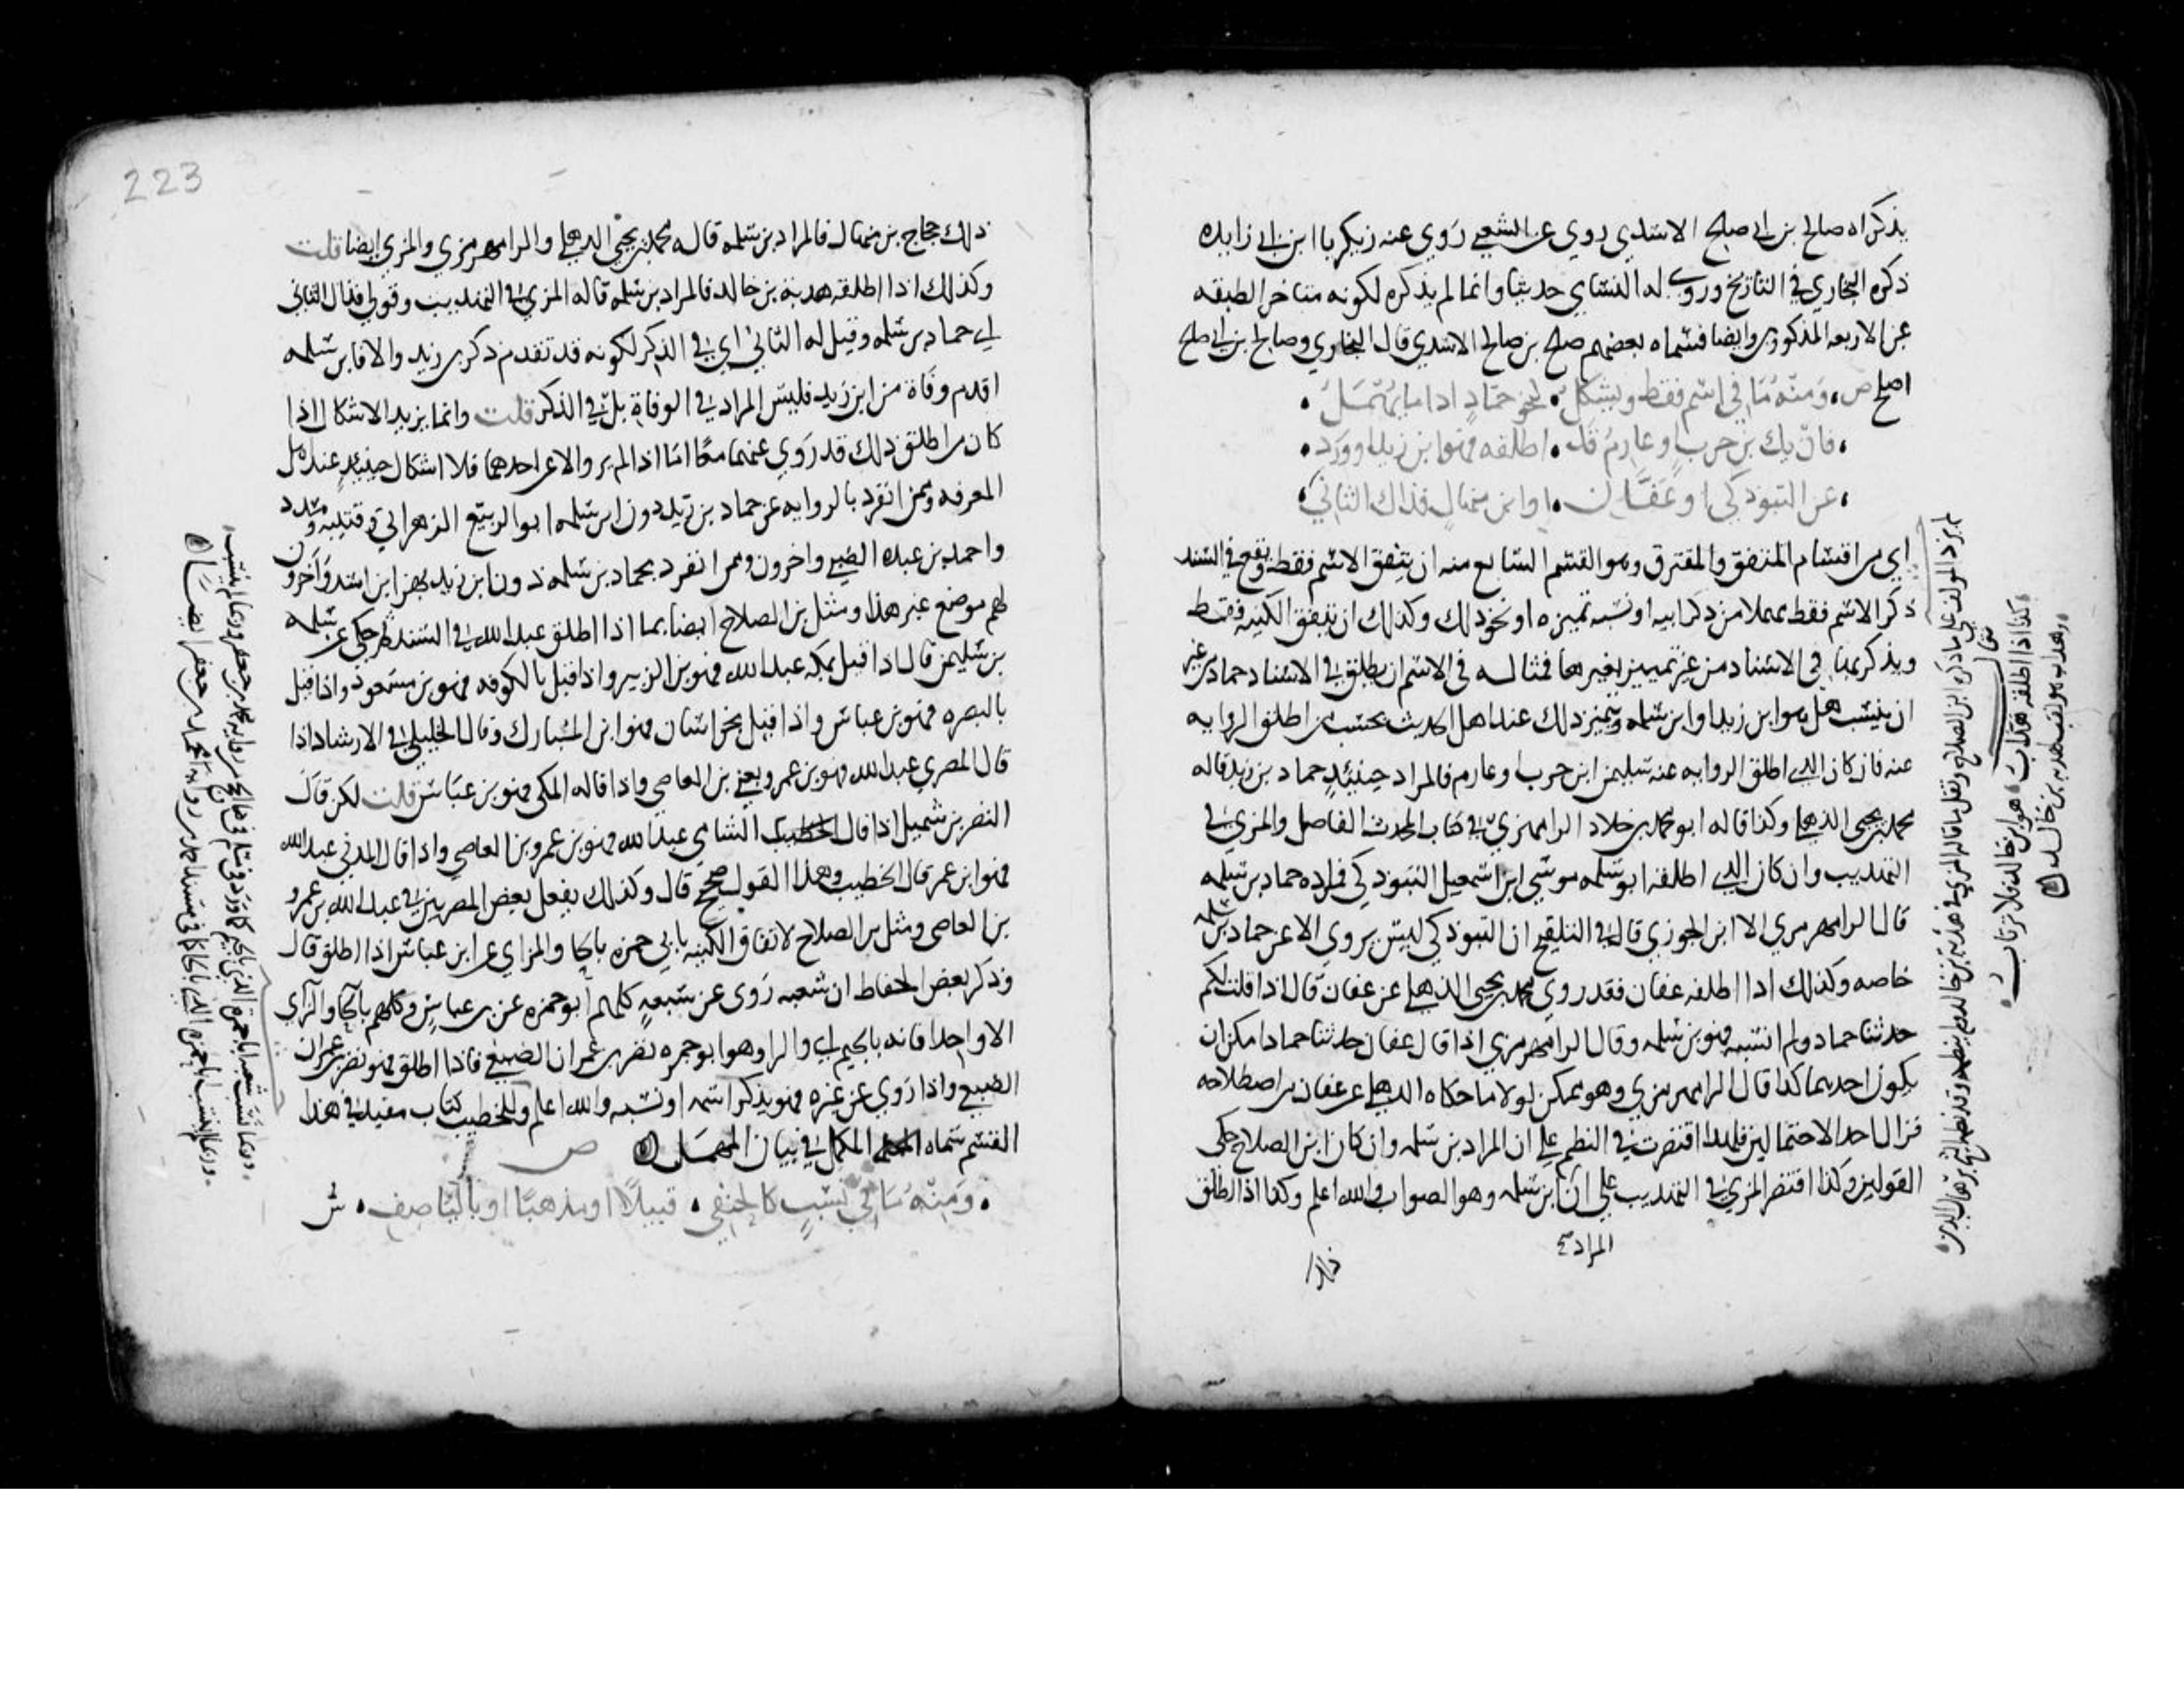 يذكراه صالح بن ابي صلح الاسدي روي عن الشعبي روي عنه زكريا ابن ابي زايده
ذكره البخاري في التاريخ وروي له النساي حديثا وانما لم يذكره لكونه متاخر الطبقه
عن الاربعه المذكورين وايضا فسماه بعضهم صلح بن صالح الاسدي قال البخاري وصالح بن ابي صلح
اصح ص ومنه ما في اسم فقط ويشكل نحو حماد اذا ما يهمل
فان يك بن حرب او عارم قد اطلقه فهو ابن زيد او ورد
عن التبوذكي او عفان او ابن منهال فذاك الثاني
اي من اقسام المتفق والمفترق وهو القسم السابع منه ان يتفق الاسم فقط ويقع في السند
ذكر الاسم فقط مهملا من ذكر ابيه او نسبه تميزه او نحو ذلك وكذلك ان تتفق الكنيه فقط
ويذكر بها في الاسناد من غير تمييز بغيرها فمثاله في الاسم ان يطلق في الاسناد حماد من غير
ان ينسب هل هو ابن زيد او ابن سلمه ويتميز ذلك عند اهل الحديث بحسب من اطلق الروايه
عنه فان كان الذي اطلق الروايه عنه سليمن ابن حرب او عارم فالمراد حينئذ حماد بن زيد قاله
محمد بن يحيى الذهلي وكذا قاله ابو محمد بن خلاد الرامهرمزي في كتاب المحدث الفاصل والمزي في
التهذيب وان كان الذي اطلقه ابو سلمه موسى ابن اسمعيل التبوذكي فمراده حماد بن سلمه
قاله الرامهرمزي الا ابن الجوزي قال في التلقيح ان التبوذكي ليس يروي الا عن حماد بن سلمه
خاصه وكذلك اذا اطلقه عفان فقد روي محمد بن يحيى الذهلي عن عفان قال اذا قلت لكم
حدثنا حماد ولم انسبه فهو بن سلمه وقال الرامهرمزي اذا قال عفان حدثنا حماد امكن ان
يكون احدهما كذا قال الرامهرمزي وهو ممكن لولا ما حكاه الذهلي عن عفان من اصطلاحه
فزال احد الاحتمالين فلهذا اقتصرت في النظم علي ان المراد بن سلمه وان كان ابن الصلاح حكى
القولين وكذا اقتصر المزي في التهذيب علي ان المراد ابن سلمه وهو الصواب والله اعلم وكذا اذا اطلق
ذلك
لم يزد المولف علي ما ذكره ابن الصلاح ونقل ما قاله المزي في هدبة بن خالد ولم ينظمه وقد نظمه الشيخ برهان الدين
فقال
كذا اذا اطلقه هداب هو ابن خالد فلا ترتاب
وهداب هو لقب هدبه بن خالد
223
ذلك حجاج بن منهال فالمراد بن سلمه قاله محمد بن يحيى الذهلي والرامهرمزي والمزي ايضا قلت
وكذلك اذا اطلقه هدبة بن خالد فالمراد بن سلمه قاله المزي في التهذيب وقولي فذاك الثاني
اي حماد بن سلمه وقيل له الثاني اي في الذكر لكونه قد تقدم ذكر بن زيد والا فابن سلمه
اقدم وفاة من ابن زيد فليس المراد في الوفاة بل في الذكر قلت وانما يزيد الاشكال اذا
كان من اطلق ذلك قد روي عنهما معا اما اذا لم يرو الا عن احدهما فلا اشكال حينئذ عند اهل
المعرفه وممن انفرد بالروايه عن حماد بن زيد دون ابن سلمه ابو الربيع الزهراني وقتيبه ومسدد
واحمد بن عبده الضبي واخرون وممن انفرد بحماد بن سلمه دون ابن زيد بهز ابن اسد واخرون
لهم موضع غير هذا ومثل بن الصلاح ايضا بما اذا اطلق عبدالله في السند ثم حكى عن سلمه
بن سليمن قال اذا قيل بمكه عبدالله فهو بن الزبير واذا قيل بالكوفه فهو بن مسعود واذا قيل
بالبصره فهو بن عباس واذا قيل بخراسان فهو ابن المبارك وقال الخليلي في الارشاد اذا
قال المصري عبدالله فهو بن عمرو يعني بن العاصي واذا قاله المكي فهو بن عباس قلت لكن قال
النضر بن شميل اذا قال الشامي عبدالله فهو بن عمرو بن العاصي واذا قال المدني عبدالله
فهو ابن عمر قال الخطيب وهذا القول صحيح قال وكذلك يفعل بعض المصريين في عبدالله بن عمرو
بن العاصي ومثل بن الصلاح لاتفاق الكنيه بابي حمزه بالحا والزاي عن ابن عباس اذا اطلق قال
وذكر بعض الحفاظ ان شعبه روى عن سبعة كلهم ابو حمزه عن بن عباس وكلهم بالحا والزاي
الا واحدا فانه بالجيم والرا وهو ابو جمره نصر بن عمران الضبعي فاذا اطلق فهو نصر بن عمران
الضبعي واذا روي عن غيره فهو يذكر اسمه او نسبه والله اعلم وللخطيب كتاب مفيد في هذا
القسم سماه المكمل في بيان المهمل ص
ومنه ما في نسب كالحنفي قبيلا او مذهبا او باليا صف ش